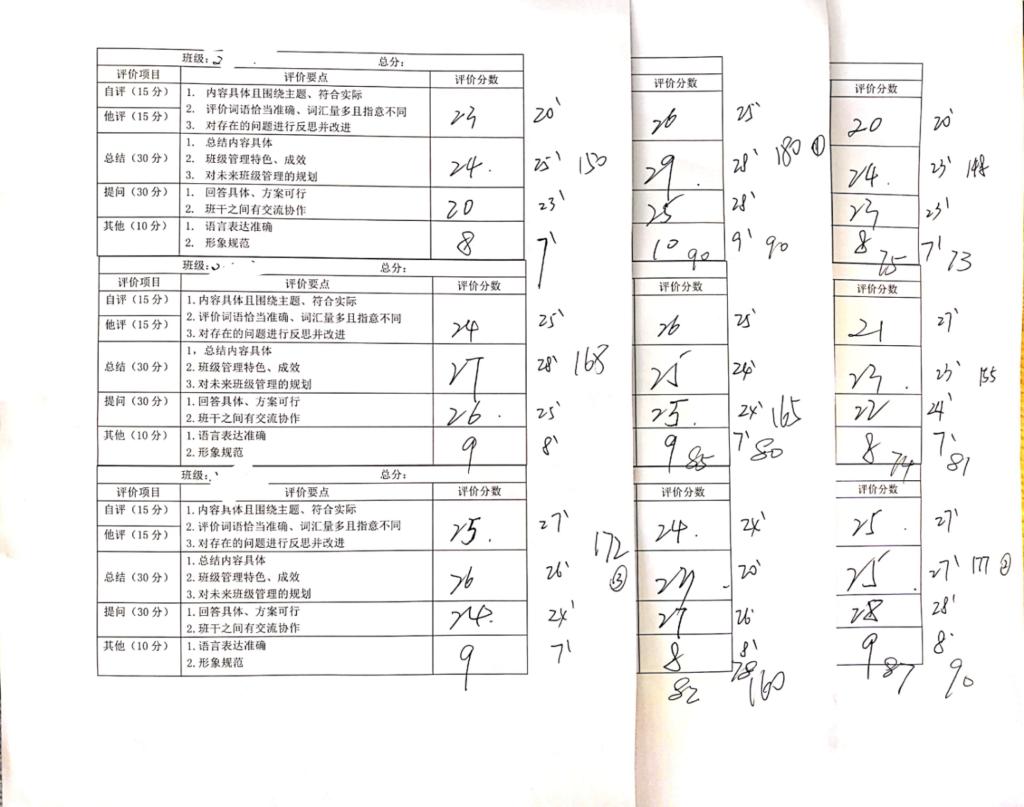 班级: 总分:
评价项目 评价要点 评价分数
自评（15 分） 1. 内容具体且围绕主题、符合实际
他评（15 分） 2. 评价词语恰当准确、词汇量多且指意不同 23 20'
3. 对存在的问题进行反思并改进
1. 总结内容具体
总结（30 分） 2. 班级管理特色、成效 24. 25' 150
3. 对未来班级管理的规划
提问（30 分） 1. 回答具体、方案可行 20 23'
2. 班干之间有交流协作
其他（10 分） 1. 语言表达准确 8 7'
2. 形象规范
班级: 总分:
评价项目 评价要点 评价分数
自评（15 分） 1.内容具体且围绕主题、符合实际
他评（15 分） 2.评价词语恰当准确、词汇量多且指意不同 24 25'
3.对存在的问题进行反思并改进
1，总结内容具体
总结（30 分） 2.班级管理特色、成效 27 28' 168
3.对未来班级管理的规划
提问（30 分） 1.回答具体、方案可行 26. 25'
2.班干之间有交流协作
其他（10 分） 1.语言表达准确 9 8'
2.形象规范
班级: 总分:
评价项目 评价要点 评价分数
自评（15 分） 1.内容具体且围绕主题、符合实际
他评（15 分） 2.评价词语恰当准确、词汇量多且指意不同 25. 27'
3.对存在的问题进行反思并改进 172
1.总结内容具体
总结（30 分） 2.班级管理特色、成效 26 26' ③
3.对未来班级管理的规划
提问（30 分） 1.回答具体、方案可行 24. 24'
2.班干之间有交流协作
其他（10 分） 1.语言表达准确 9 7'
2.形象规范
评价分数
26 25'
29. 28' 180 ①
25 28'
10 90 9' 90
评价分数
26 25'
25 24'
25. 24' 165
9 85 7' 80
评价分数
24. 24'
23 20'
27 26'
8 8'
82 78 160
评价分数
20 20'
24. 23' 148
23 23'
8 75 7' 73
评价分数
21 27'
23. 23' 155
22 24'
8 74 7' 81
评价分数
25. 27'
25. 27' 177 ②
28 28'
9 87 8' 90